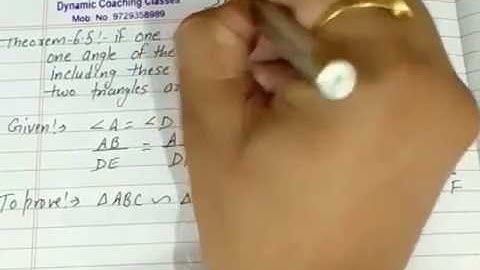 Dynamic Coaching Classes
Mob. No. 9729358989
Theorem-6.5:- if one
one angle of the
including these
two triangles
Given:→ ∠A = ∠D
AB/DE =
To prove:→ ΔABC ∽ Δ
F